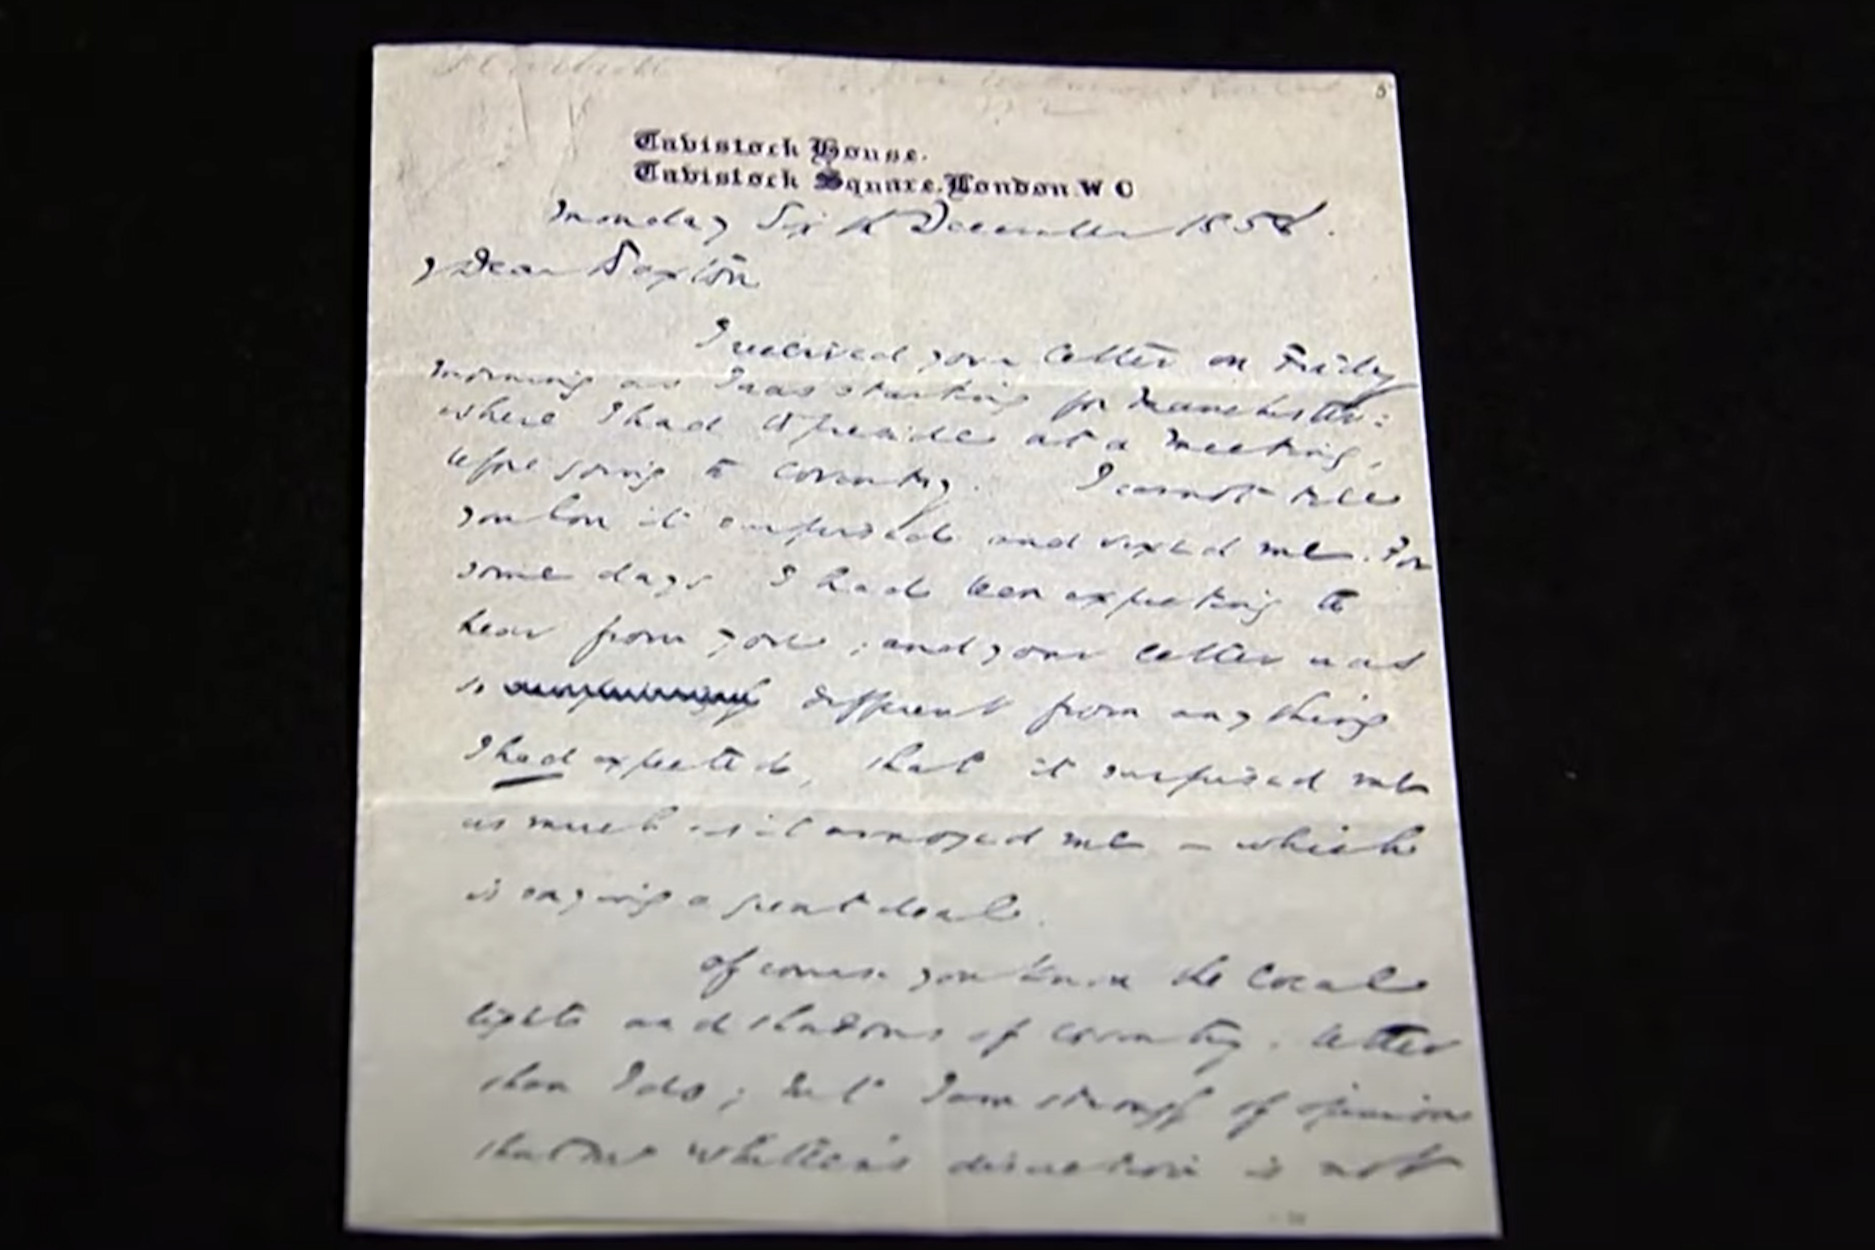 Tavistock House.
Tavistock Square, London. W C
Monday Sixth December 1858.
My Dear Paxton
I received your letter on Friday
morning as I was starting for Manchester:
where I had to preside at a meeting,
before going to Coventry. I cannot tell
you how it surprised and vexed me. For
some days I had been expecting to
hear from you; and your letter was
so different from anything
I had expected, that it surprised me
as much as it annoyed me – which
is saying a great deal.
Of course you know the local
lights and shadows of Coventry, better
than I do; but I am strongly of opinion
that Mr Whittem's discretion is not